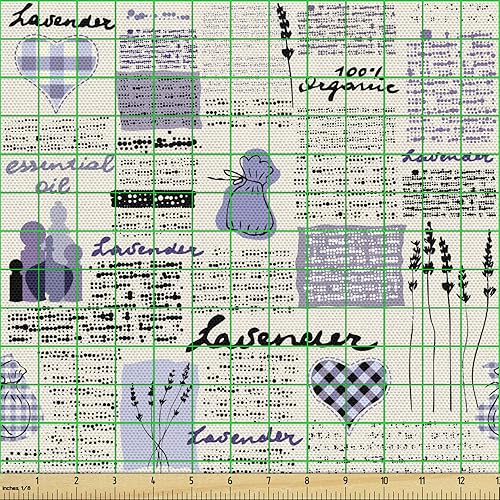 Lavender
100%
Organic
essential
oil
Lavender
Lavender
Lavender
Lavender
1 2 3 4 5 6 7 8 9 10 11 12
inches, 1/8